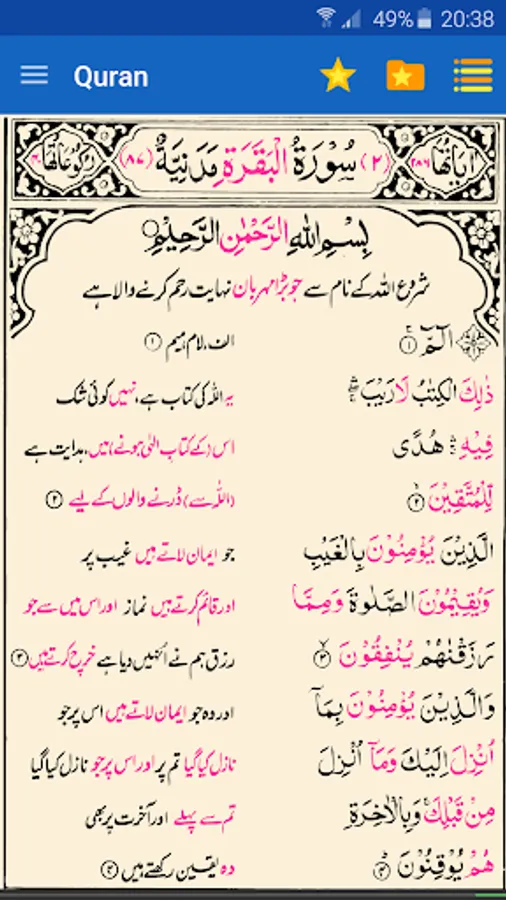 49% 20:38
Quran
اٰیاتھا ۲۸۶ (۲) سُوْرَةُ الْبَقَرَةِ مَدَنِيَّةٌ (۸۷) رکوعاتھا ۴۰
بِسْمِ اللهِ الرَّحْمٰنِ الرَّحِيْمِ
شروع اللہ کے نام سے جو بڑا مہربان نہایت رحم کرنے والا ہے
الٓمّٓ ۱ الف، لام، میم ۱
ذٰلِكَ الْكِتٰبُ لَا رَيْبَ یہ اللہ کی کتاب ہے، نہیں کوئی شک
فِيْهِ هُدًى اس (کے کتابِ الٰہی ہونے) میں، ہدایت ہے
لِّلْمُتَّقِيْنَ ۲ (اللہ سے) ڈرنے والوں کے لیے ۲
الَّذِيْنَ يُؤْمِنُوْنَ بِالْغَيْبِ جو ایمان لاتے ہیں غیب پر
وَيُقِيْمُوْنَ الصَّلٰوةَ وَمِمَّا اور قائم کرتے ہیں نماز اور اس میں سے جو
رَزَقْنٰهُمْ يُنْفِقُوْنَ ۳ رزق ہم نے اُنہیں دیا ہے خرچ کرتے ہیں ۳
وَالَّذِيْنَ يُؤْمِنُوْنَ بِمَآ اور وہ جو ایمان لاتے ہیں اس پر جو
اُنْزِلَ اِلَيْكَ وَمَآ اُنْزِلَ نازل کیا گیا تم پر اور اس پر جو نازل کیا گیا
مِنْ قَبْلِكَ وَبِالْاٰخِرَةِ تم سے پہلے اور آخرت پر بھی
هُمْ يُوْقِنُوْنَ ۴ وہ یقین رکھتے ہیں ۴